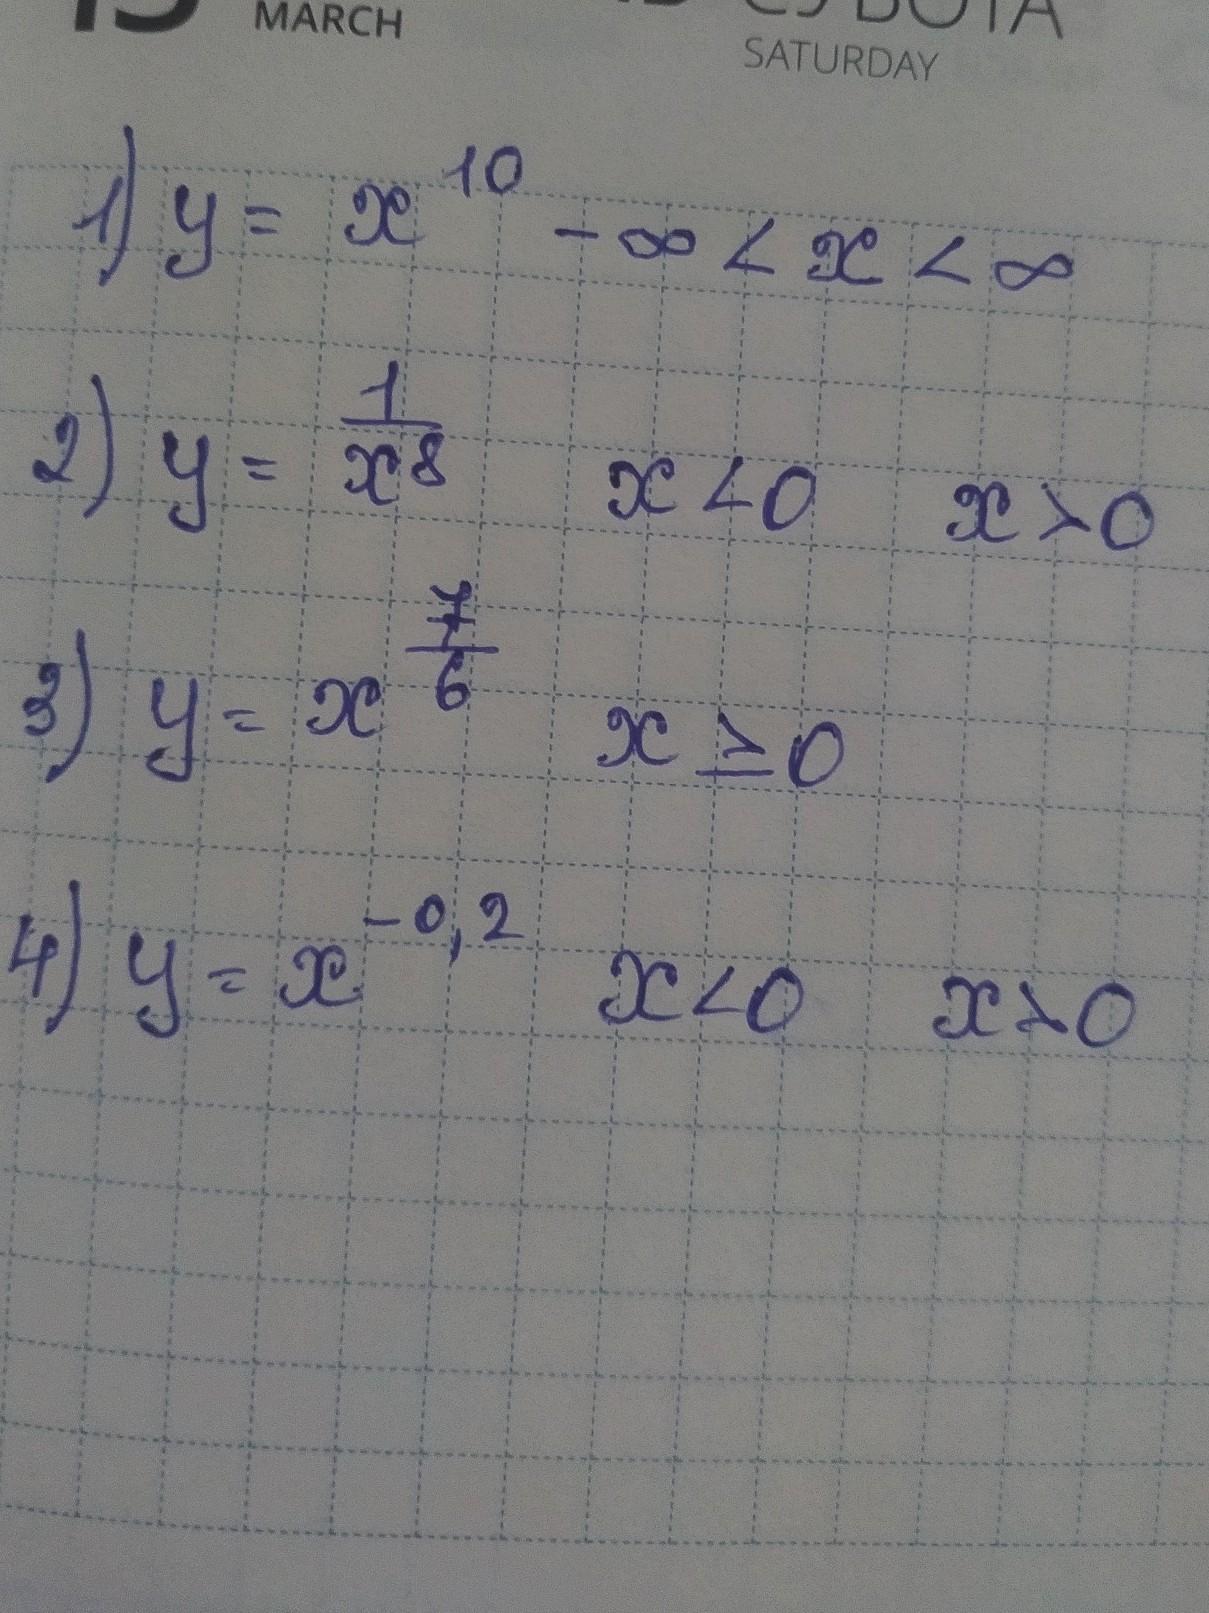 MARCH
SATURDAY
1) y = x^10 -∞ < x < ∞
2) y = 1/x^8 x < 0 x > 0
3) y = x^(7/6) x ≥ 0
4) y = x^(-0,2) x < 0 x > 0